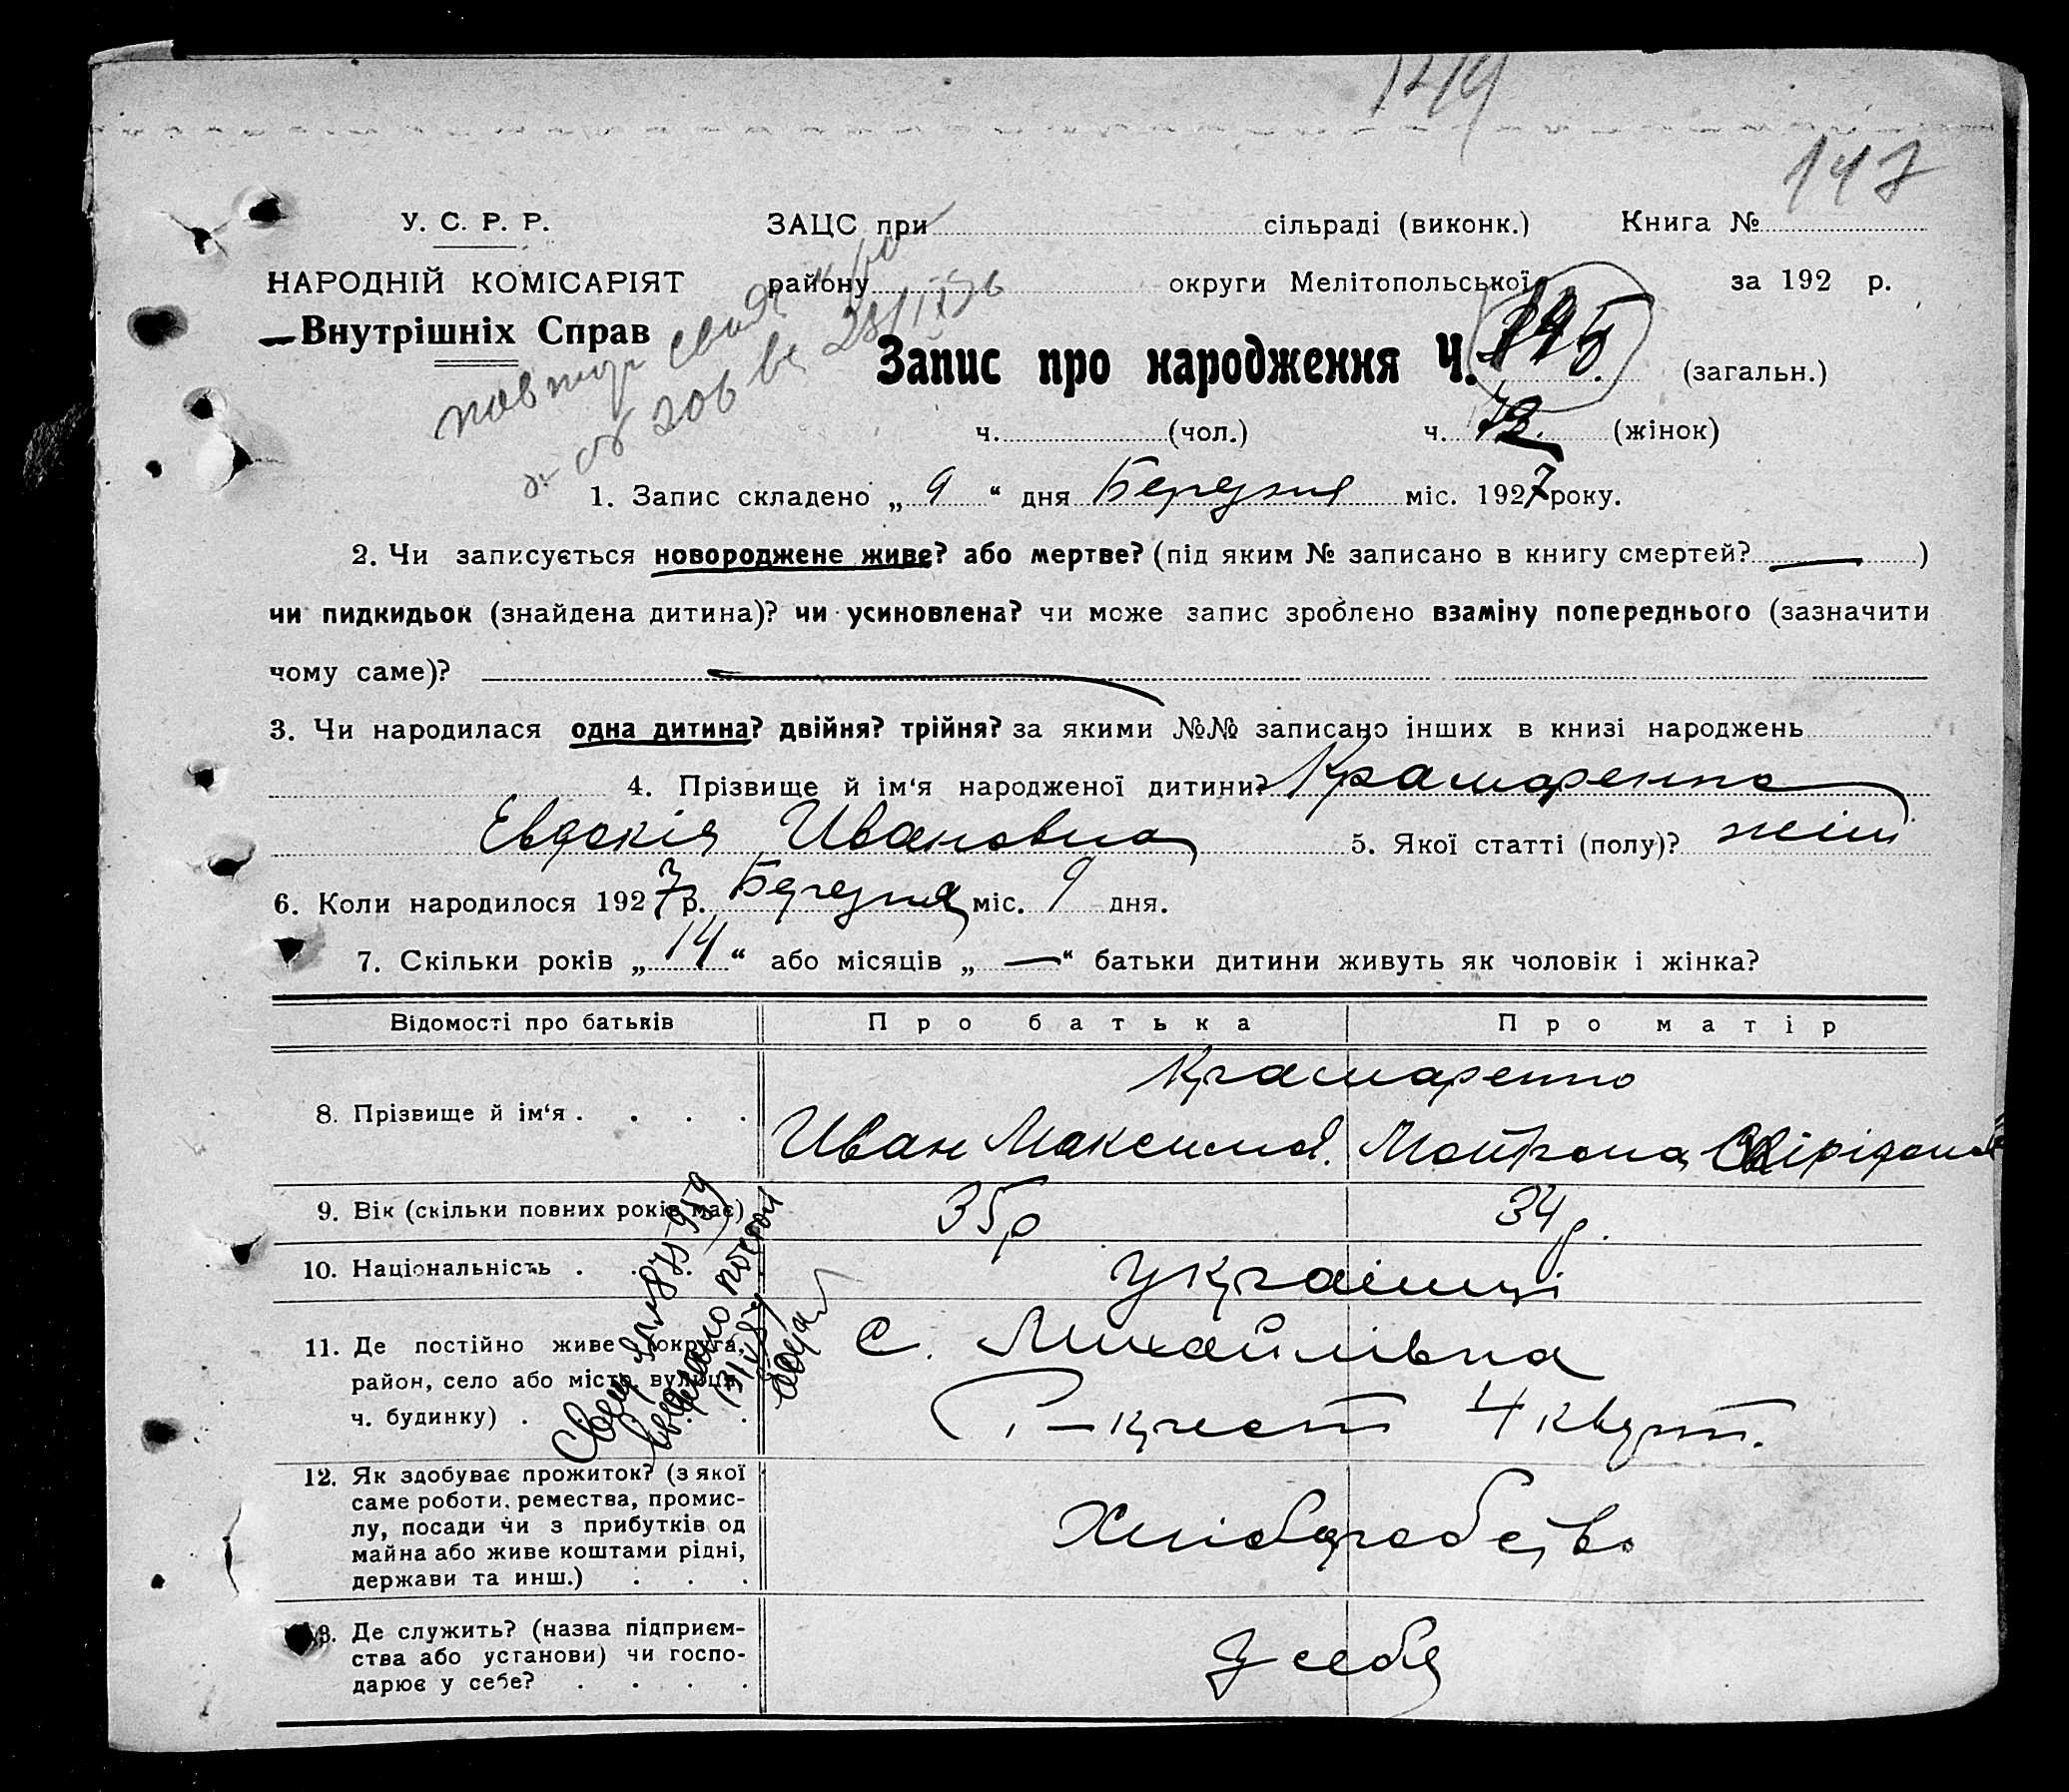 149
147
У. С. Р. Р.
ЗАЦС при сільраді (виконк.) Книга №
НАРОДНІЙ КОМІСАРІЯТ
району округи Мелітопольської за 192 р.
Внутрішніх Справ
Запис про народження Ч. 145 (загальн.)
ч. (чол.) ч. 72 (жінок)
1. Запис складено „ 9 “ дня Березня міс. 1927 року.
2. Чи записується новороджене живе? або мертве? (під яким № записано в книгу смертей? — )
чи пидкидьок (знайдена дитина)? чи усиновлена? чи може запис зроблено взаміну попереднього (зазначити
чому саме)? —
3. Чи народилася одна дитина? двійня? трійня? за якими №№ записано інших в книзі народжень
4. Прізвище й ім‘я народженої дитини? Крамаренко
Евдокія Ивановна 5. Якої статті (полу)? жіш
6. Коли народилося 1927 р. Березня міс. 9 дня.
7. Скільки років „ 14 “ або місяців „ — “ батьки дитини живуть як чоловік і жінка?
Відомості про батьків Про батька Про матір
Крамаренко
8. Прізвище й ім‘я . . . . Иван Максимов. Мотрона Свірідон
9. Вік (скільки повних років має) 35р 34р.
10. Національність . . . . українці
11. Де постійно живе (округа, с. Михайлівна
район, село або місто, вулиця,
ч. будинку) . 4 кварт.
12. Як здобуває прожиток? (з якої
саме роботи, ремества, промис-
лу, посади чи з прибутків од
майна або живе коштами рідні,
держави та инш.) . . . Хліборобство
13. Де служить? (назва підприєм-
ства або установи) чи госпо-
дарює у себе? . . . . У себя